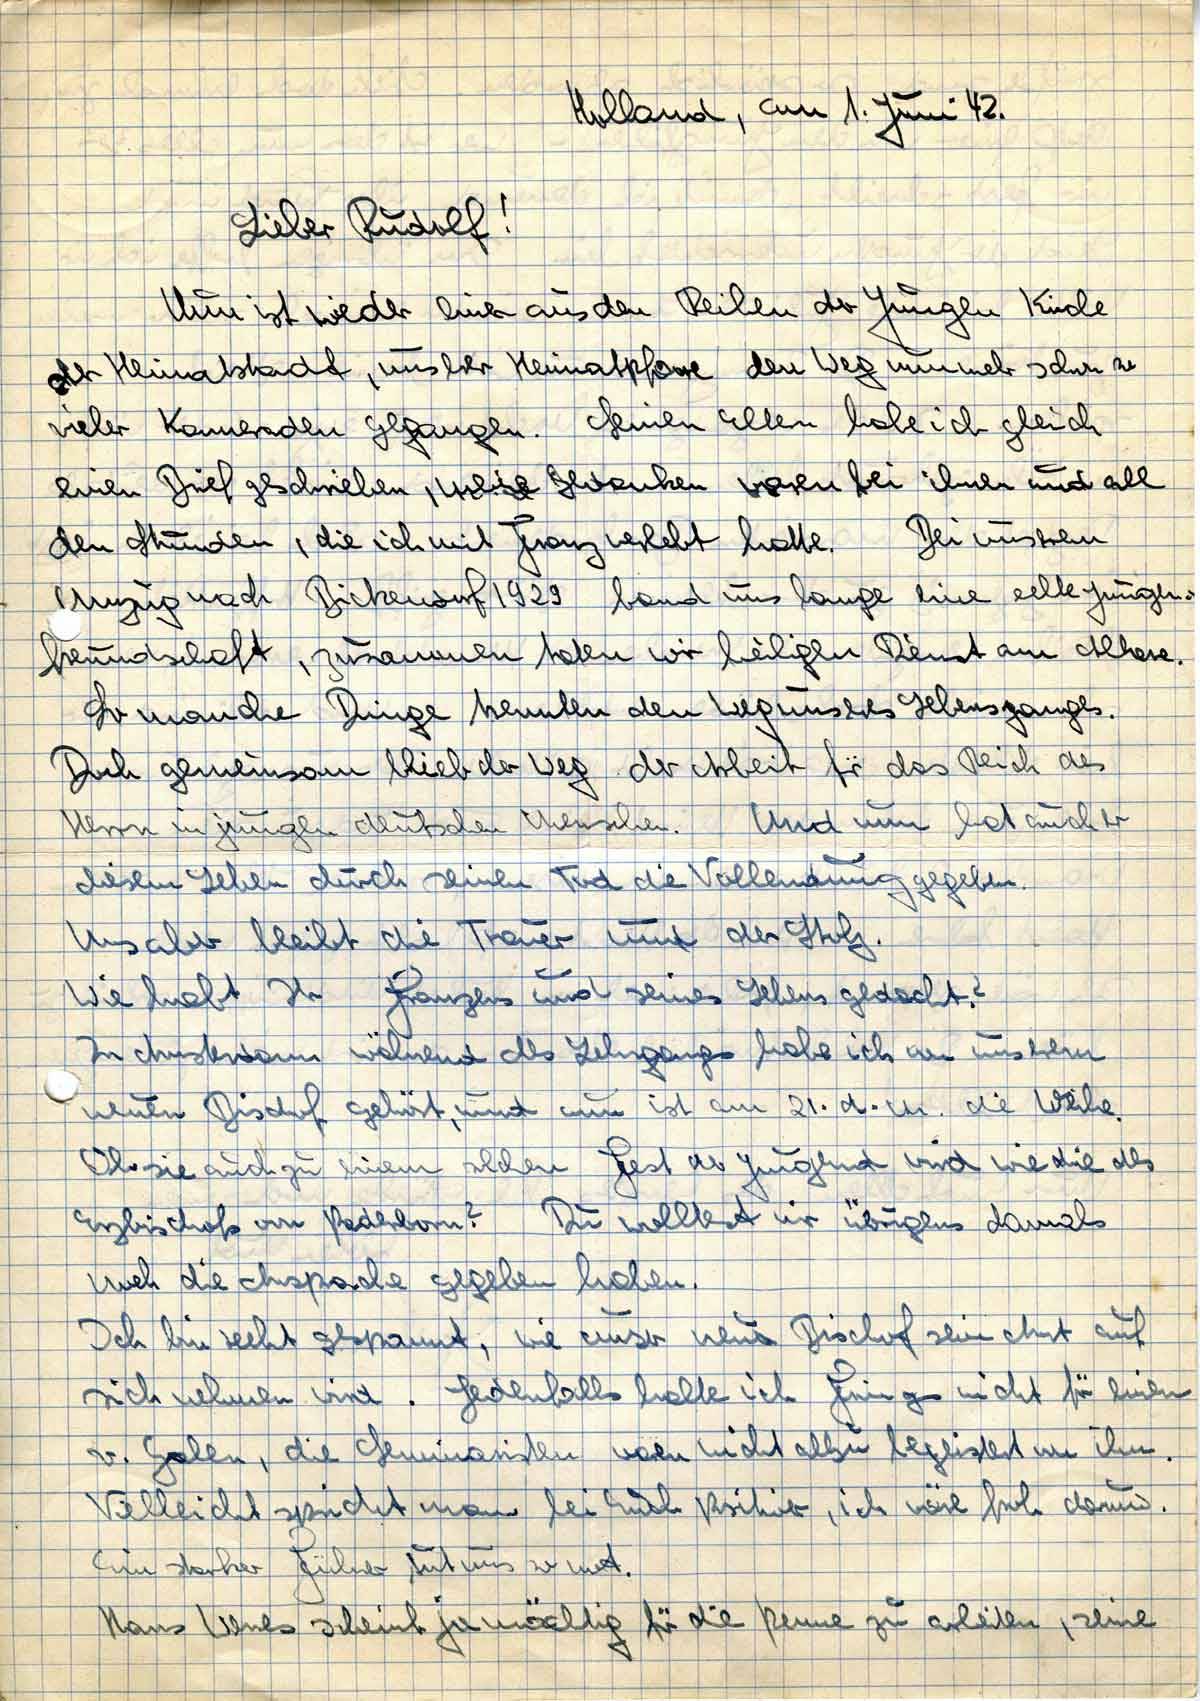 Holland, am 1. Juni 42.
Lieber Rudolf!
Nun ist wieder einer aus den Reihen der Jungen Kirche
der Heimatstadt, unsrer Heimatpfarre den Weg nunmehr schon so
vieler Kameraden gegangen. Seinen Eltern habe ich gleich
einen Brief geschrieben, meine Gedanken waren bei ihnen und all
den Stunden, die ich mit Franz verlebt hatte. Bei unserem
Umzug nach Bickendorf 1929 band uns lange eine echte Jungen-
freundschaft, zusammen taten wir heiligen Dienst am Altare.
So manche Dinge trennten den Weg unseres Lebensganges.
Doch gemeinsam blieb der Weg der Arbeit für das Reich des
Herrn in jungen deutschen Menschen. Und nun hat auch er
diesem Leben durch seinen Tod die Vollendung gegeben.
Uns aber bleibt die Trauer und der Stolz.
Wie habt Ihr Franzens und seines Lebens gedacht?
In Amsterdam während des Lehrgangs habe ich von unserem
neuen Bischof gehört, und nun ist am 21. d. M. die Weihe.
Ob sie auch zu einem solchen Fest der Jugend wird wie die des
Erzbischofs von Paderborn? Du wolltest mir übrigens damals
noch die Ansprache gegeben haben.
Ich bin recht gespannt, wie unser neuer Bischof sein Amt auf
sich nehmen wird. Jedenfalls halte ich Frings nicht für einen
v. Galen, die Seminaristen waren nicht allzu begeistert von ihm.
Vielleicht spricht man bei Euch positiver, ich wäre froh darum.
Ein starker Führer tut uns so not.
Hans Venes scheint ja mächtig für die Penne zu arbeiten, seine